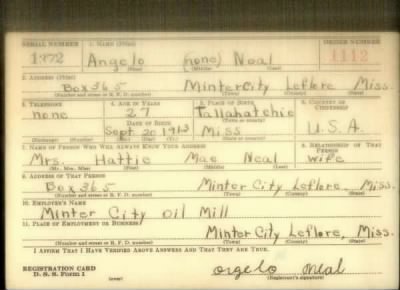 SERIAL NUMBER 1. NAME (Print) ORDER NUMBER
1772 Angelo (none) Neal 1112
(First) (Middle) (Last)
2. ADDRESS (Print)
Box 365 Minter City Leflore Miss.
(Number and street or R. F. D. number) (Town) (County) (State)
3. TELEPHONE 4. AGE IN YEARS 5. PLACE OF BIRTH 6. COUNTRY OF CITIZENSHIP
none 27 Tallahatchie
DATE OF BIRTH (Town or county)
Sept. 20 1913 Miss U.S.A.
(Exchange) (Number) (Mo.) (Day) (Yr.) (State or country)
7. NAME OF PERSON WHO WILL ALWAYS KNOW YOUR ADDRESS 8. RELATIONSHIP OF THAT PERSON
Mrs. Hattie Mae Neal wife
(Mr., Mrs., Miss) (First) (Middle) (Last)
9. ADDRESS OF THAT PERSON
Box 365 Minter City Leflore, Miss.
(Number and street or R. F. D. number) (Town) (County) (State)
10. EMPLOYER'S NAME
Minter City Oil Mill
11. PLACE OF EMPLOYMENT OR BUSINESS
Minter City Leflore, Miss.
(Number and street or R. F. D. number) (Town) (County) (State)
I AFFIRM THAT I HAVE VERIFIED ABOVE ANSWERS AND THAT THEY ARE TRUE.
REGISTRATION CARD
D. S. S. Form 1 (over) Angelo Neal
(Registrant's signature)